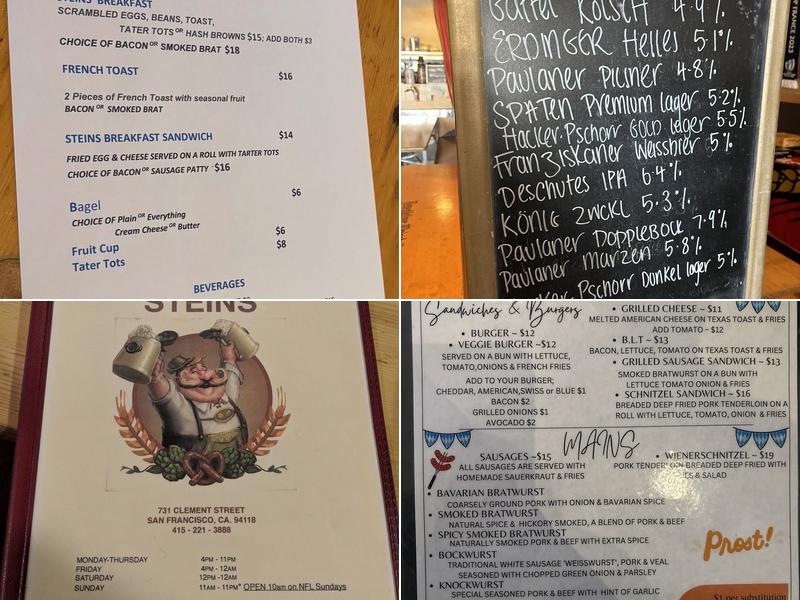 STEINS BREAKFAST
SCRAMBLED EGGS, BEANS, TOAST,
TATER TOTS OR HASH BROWNS $15; ADD BOTH $3
CHOICE OF BACON OR SMOKED BRAT $18
FRENCH TOAST $16
2 Pieces of French Toast with seasonal fruit
BACON OR SMOKED BRAT
STEINS BREAKFAST SANDWICH $14
FRIED EGG & CHEESE SERVED ON A ROLL WITH TARTER TOTS
CHOICE OF BACON OR SAUSAGE PATTY $16
Bagel $6
CHOICE OF Plain OR Everything
Cream Cheese OR Butter
Fruit Cup $6
Tater Tots $8
BEVERAGES
Gaffel Kölsch 4.9%
ERDINGER Helles 5.1%
Paulaner Pilsner 4.8%
SPATEN Premium lager 5.2%
Hacker.Pschorr Gold lager 5.5%
Franziskaner Weissbier 5%
Deschutes IPA 6.4%
KÖNIG ZWCKL 5.3%
Paulaner Dopplebock 7.9%
Paulaner Marzen 5.8%
Pschorr Dunkel lager 5%
FRANCE 2023
STEINS
731 CLEMENT STREET
SAN FRANCISCO, CA. 94118
415 - 221 - 3888
MONDAY-THURSDAY 4PM - 11PM
FRIDAY 4PM - 12AM
SATURDAY 12PM -12AM
SUNDAY 11AM - 11PM* OPEN 10am on NFL Sundays
Sandwiches & Burgers
• BURGER ~ $12
• VEGGIE BURGER ~$12
SERVED ON A BUN WITH LETTUCE,
TOMATO,ONIONS & FRENCH FRIES
ADD TO YOUR BURGER;
CHEDDAR, AMERICAN,SWISS or BLUE $1
BACON $2
GRILLED ONIONS $1
AVOCADO $2
• GRILLED CHEESE ~ $11
MELTED AMERICAN CHEESE ON TEXAS TOAST & FRIES
ADD TOMATO ~ $12
• B.L.T ~ $13
BACON, LETTUCE, TOMATO ON TEXAS TOAST & FRIES
• GRILLED SAUSAGE SANDWICH ~ $13
SMOKED BRATWURST ON A BUN WITH
LETTUCE TOMATO ONION & FRIES
• SCHNITZEL SANDWICH ~ $16
BREADED DEEP FRIED PORK TENDERLOIN ON A
ROLL WITH LETTUCE, TOMATO, ONION & FRIES
MAINS
SAUSAGES ~$15
ALL SAUSAGES ARE SERVED WITH
HOMEMADE SAUERKRAUT & FRIES
• WIENERSCHNITZEL ~ $19
PORK TENDERLOIN BREADED DEEP FRIED WITH
& SALAD
• BAVARIAN BRATWURST
COARSELY GROUND PORK WITH ONION & BAVARIAN SPICE
• SMOKED BRATWURST
NATURAL SPICE & HICKORY SMOKED, A BLEND OF PORK & BEEF
• SPICY SMOKED BRATWURST
NATURALLY SMOKED PORK & BEEF WITH EXTRA SPICE
• BOCKWURST
TRADITIONAL WHITE SAUSAGE 'WEISSWURST', PORK & VEAL
SEASONED WITH CHOPPED GREEN ONION & PARSLEY
• KNOCKWURST
SPECIAL SEASONED PORK & BEEF WITH HINT OF GARLIC
Prost!
$1 per substitution